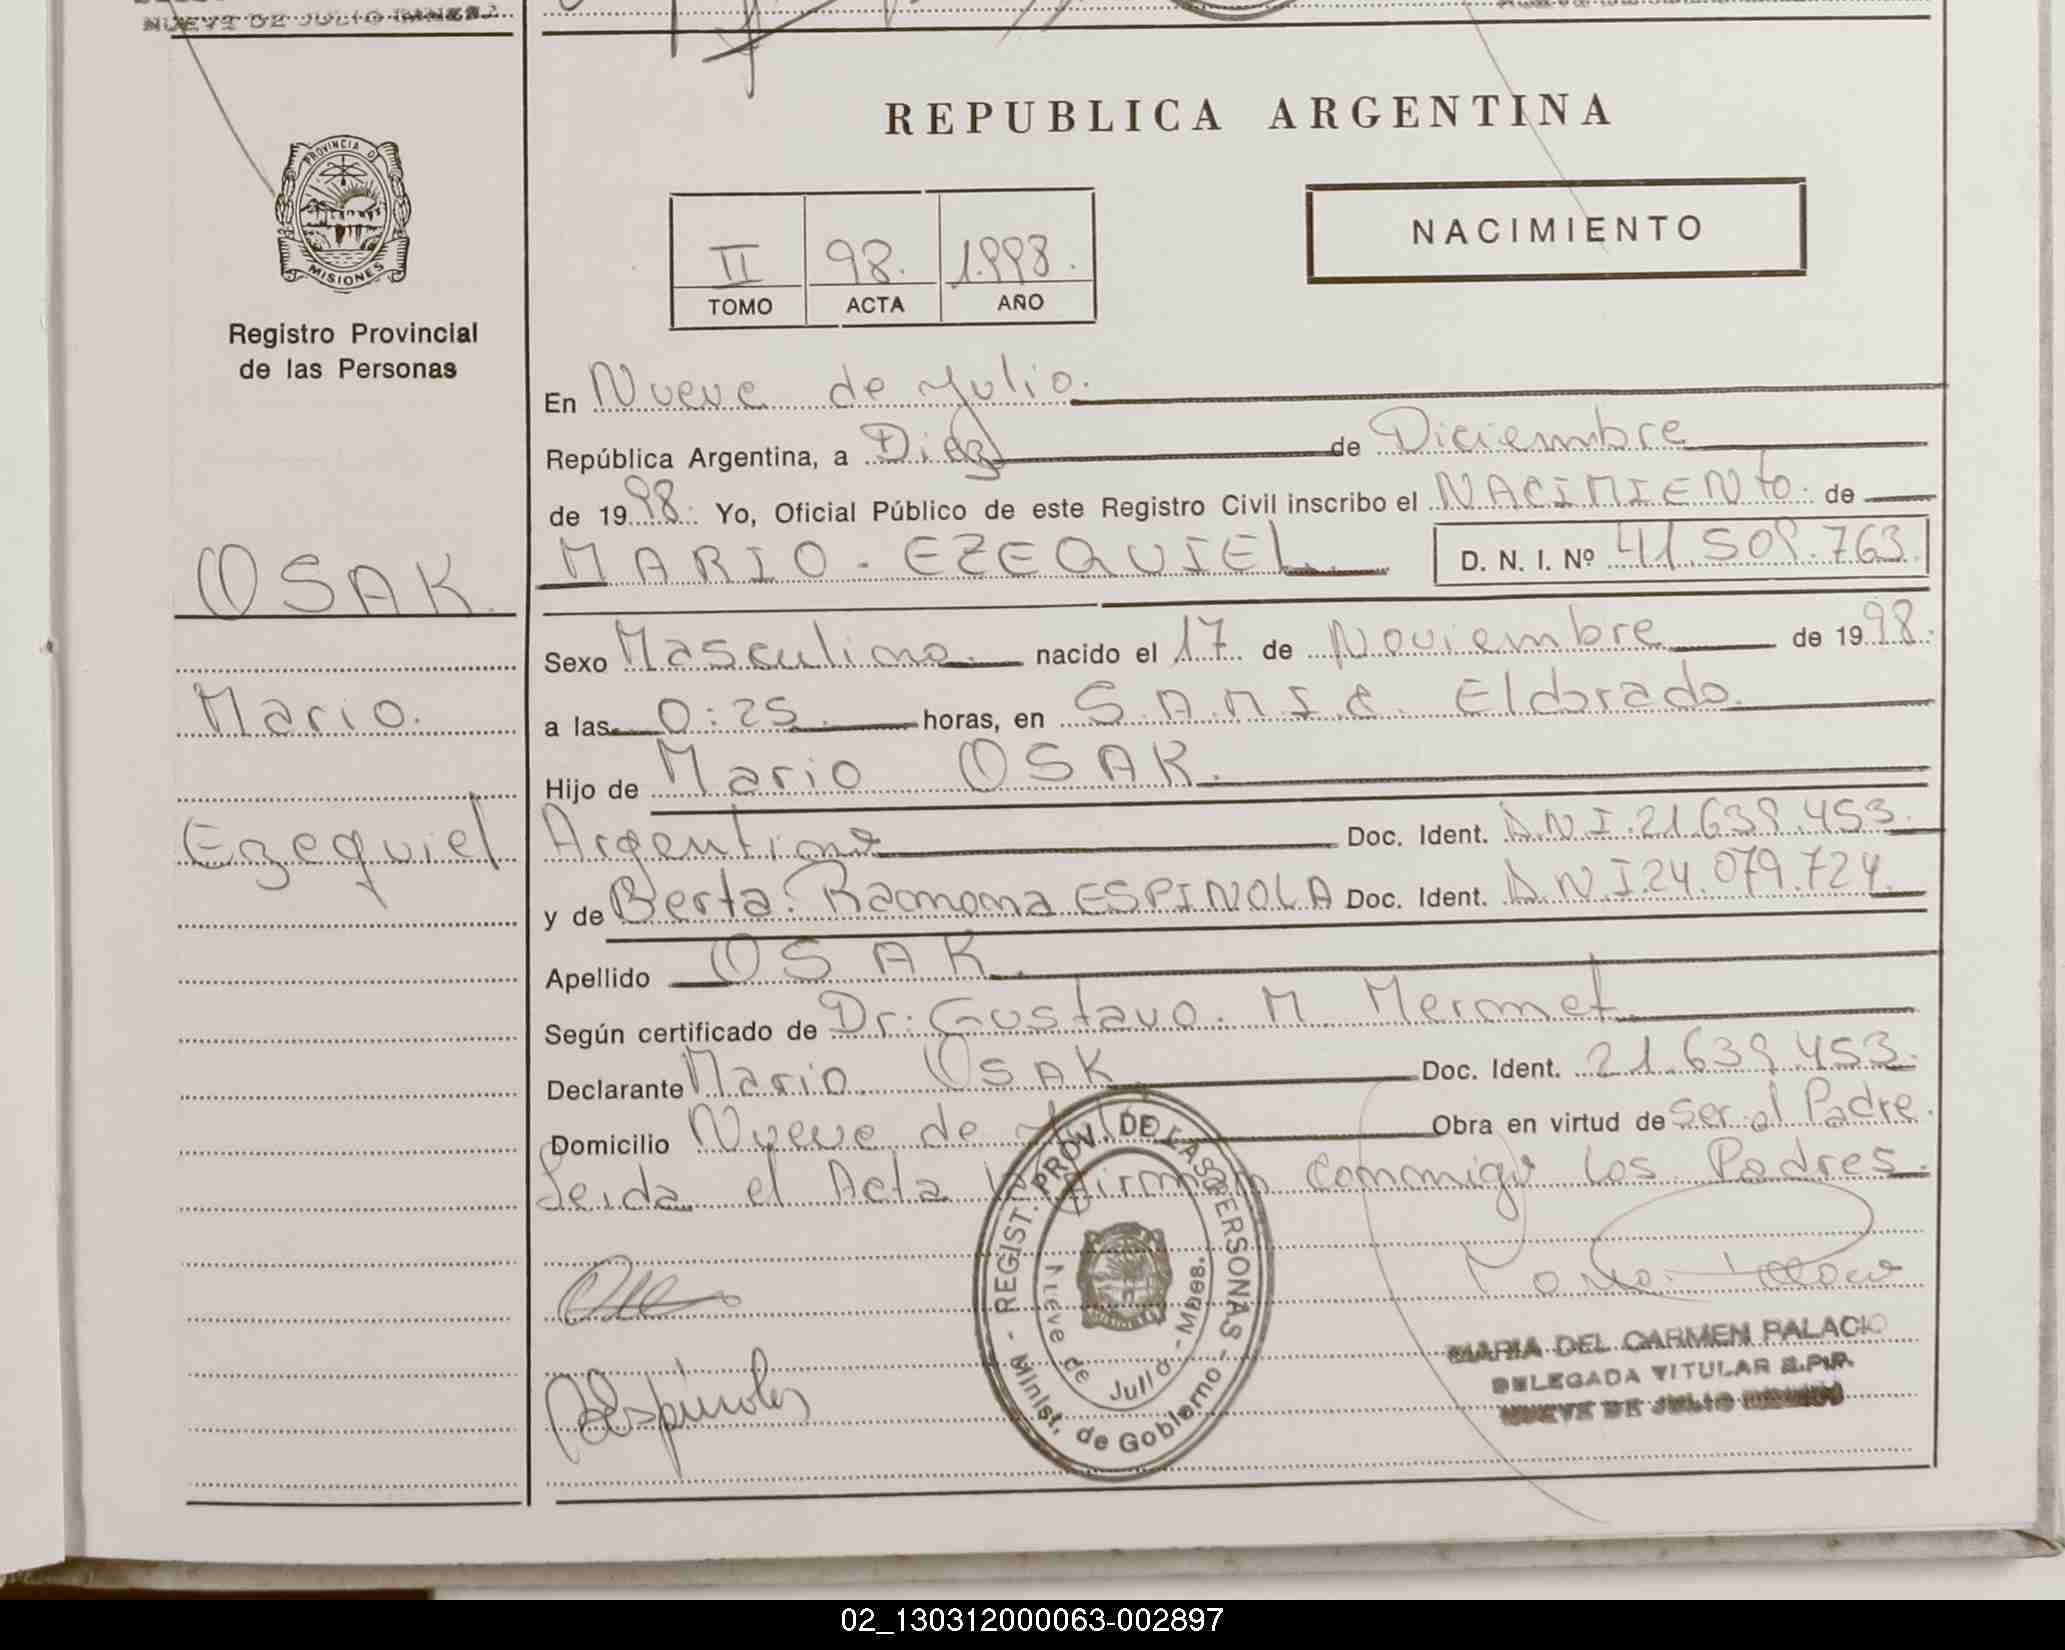 NUEVE DE JULIO
REPUBLICA ARGENTINA
PROVINCIA D
MISIONES
NACIMIENTO
II 98. 1.998.
TOMO ACTA AÑO
Registro Provincial
de las Personas
En Nueve de Julio.
República Argentina, a Diez de Diciembre
de 1998. Yo, Oficial Público de este Registro Civil inscribo el NACIMIENTO. de
OSAK.
MARIO. EZEQUIEL. D. N. I. Nº 41.509.763.
Sexo Masculino. nacido el 17 de Noviembre de 1998.
Mario.
a las 0:25. horas, en S.A.M.I.C. Eldorado.
Hijo de Mario OSAK.
Ezequiel
Argentino Doc. Ident. D.N.I.21.639.453.
y de Berta. Ramona ESPINOLA Doc. Ident. D.N.I.24.079.724.
Apellido OSAK.
Según certificado de Dr. Gustavo. M. Mermet.
Declarante Mario OSAK Doc. Ident. 21.639.453.
Domicilio Nueve de Obra en virtud de ser el Padre.
Leida el Acta firman conmigo los Padres.
REGIST. PROV. DE LAS PERSONAS
Minist. de Gobierno
Nueve de Julio - Mnes.
BEspinola
MARIA DEL CARMEN PALACIO
DELEGADA TITULAR R.P.P.
NUEVE DE JULIO MISIONES
02_130312000063-002897